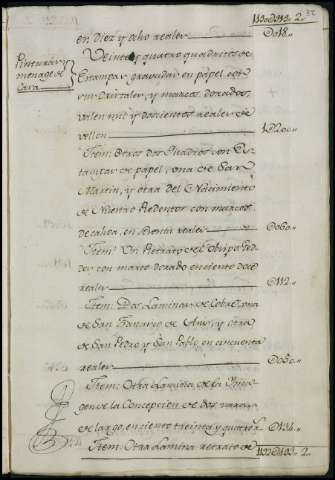 en diez y ocho reales D018
Pinturas y
menage de
Casa
Veinte y quatro quadritos de
Estampas gravadas en papel con
sus cristales, y marcos dorados,
valen mil y doscientos reales de
vellon 1D200
Item: Otros dos Quadros con Es-
tampas de papel, una de San
Martin, y otra del Nacimiento
de Nuestro Redentor con marcos
de caoba, en sesenta reales D060
Item: Un Retrato del
con marco dorado en ciento doce
reales D112
Item: Dos Laminas de Cobre, una
de San Genaro de y otra
de San Pedro, y San Pablo en cincuenta
reales D050
Item: Otra Lamina de la Ima-
gen de la Concepcion de dos varas
de largo, en ciento treinta y quatro r.s D134
Item: Otra Lamina retrato de